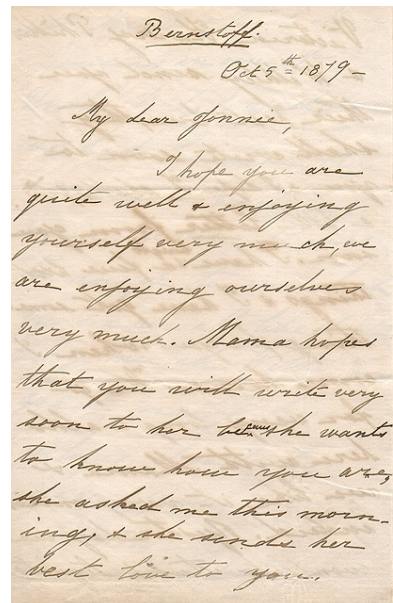 Bernstoff.
Oct 5th 1879 -
My dear Jonnie,
I hope you are
quite well & enjoying
yourself very much, we
are enjoying ourselves
very much. Mama hopes
that you will write very
soon to her because she wants
to know how you are,
she asked me this morn-
ing, & she sends her
best love to you.